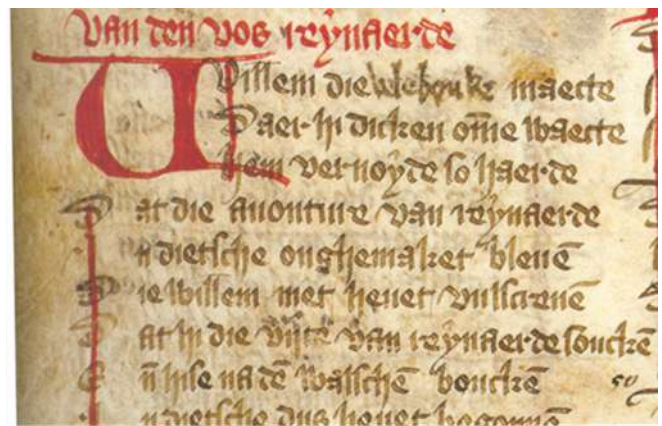 Van den vos reynaerde
Willem die vele bouke maecte
Daer hi dicken om̄e waecte
hem vernoyde so haerde
Dat die auonture van reynaerde
n dietsche onghemaket bleuē
Die willem niet heuet vulscreuē
Dat hi die vijte van reynaerde souckē
En̄ hise na dē walschē bouckē
n dietsche dus heuet begonnē